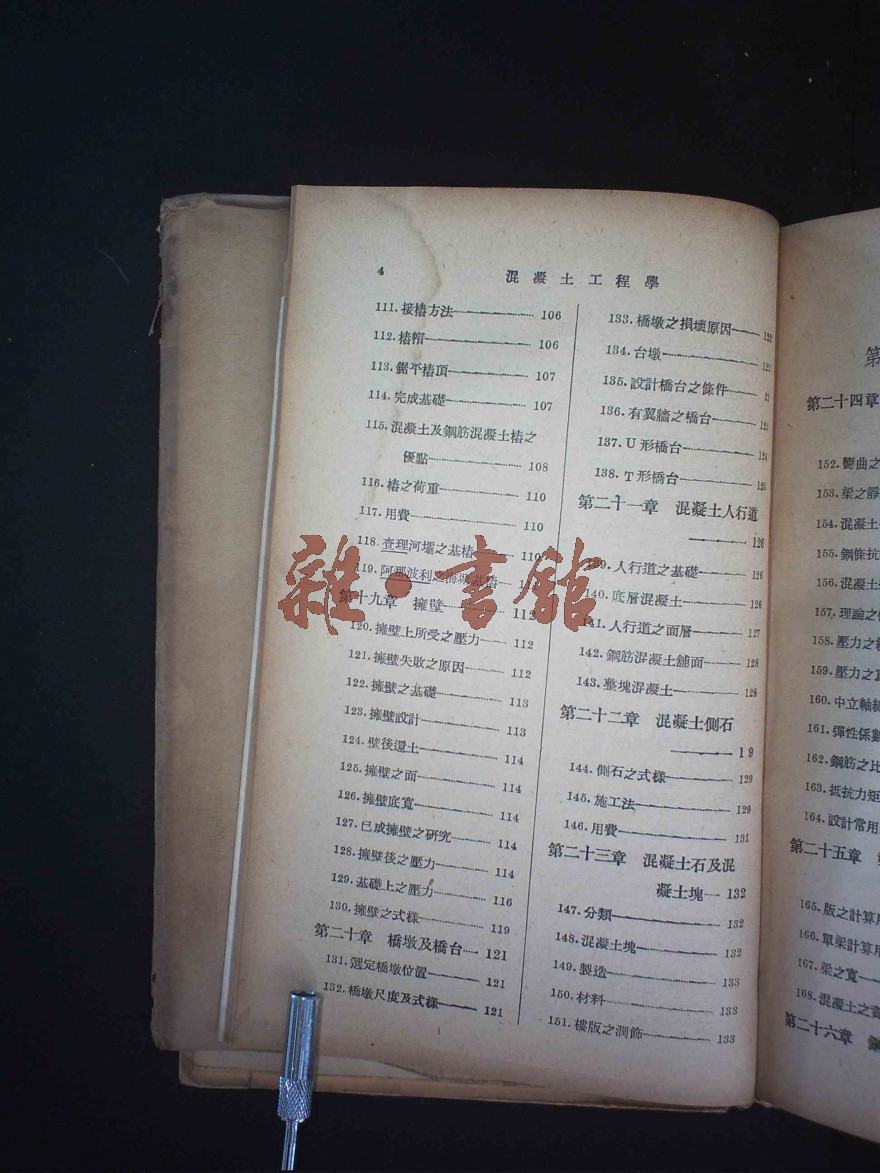 4
混凝土工程學
111.接樁方法 106
112.樁帽 106
113.鋸平樁頂 107
114.完成基礎 107
115.混凝土及鋼筋混凝土樁之
優點 108
116.樁之荷重 110
117.用費 110
118.查理河壩之基樁 110
119.阿那波利之海
第十九章 擁壁 112
120.擁壁上所受之壓力 112
121.擁壁失敗之原因 112
122.擁壁之基礎 113
123.擁壁設計 113
124.壁後還土 114
125.擁壁之面 114
126.擁壁底寬 114
127.已成擁壁之研究 114
128.擁壁後之壓力 114
129.基礎上之壓力 116
130.擁壁之式樣 119
第二十章 橋墩及橋台 121
131.選定橋墩位置 121
132.橋墩尺度及式樣 121
133.橋墩之損壞原因
134.台墩
135.設計橋台之條件
136.有翼牆之橋台
137.U形橋台 124
138.T形橋台 125
第二十一章 混凝土人行道
126
139.人行道之基礎 126
140.底層混凝土 126
141.人行道之面層 127
142.鋼筋混凝土舖面 128
143.整塊混凝土 128
第二十二章 混凝土側石
1 9
144.側石之式樣 129
145.施工法 129
146.用費 131
第二十三章 混凝土石及混
凝土塊 132
147.分類 132
148.混凝土塊 132
149.製造 133
150.材料 133
151.樓版之潤飾 133
雜·書館
第
第二十四章
152.彎曲之
153.梁之靜
154.混凝土
155.鋼條抗
156.混凝土
157.理論之
158.壓力之
159.壓力之
160.中立軸
161.彈性係數
162.鋼筋之比
163.抵抗力矩
164.設計常用
第二十五章
165.版之計算
166.單梁計算
167.梁之寬
168.混凝土之
第二十六章